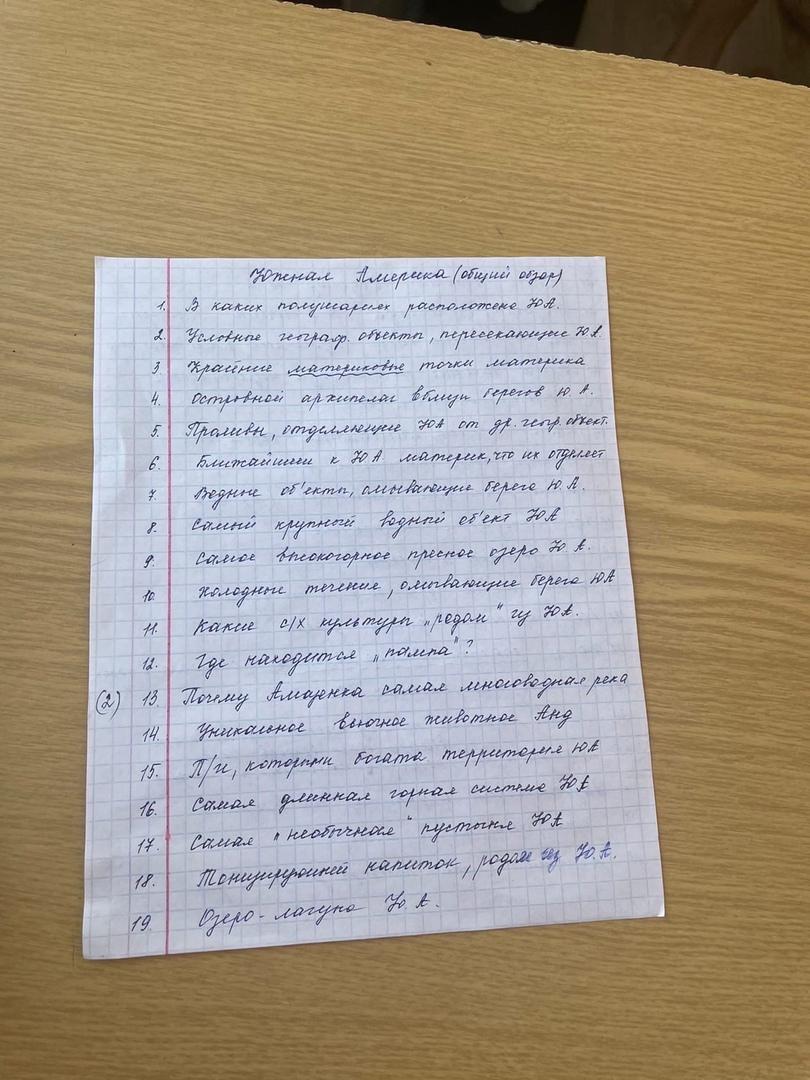 Южная Америка (общий обзор)
1. В каких полушариях расположена Ю.А.
2. Условные географ. объекты, пересекающие Ю.А.
3. Крайние материковые точки материка
4. Островной архипелаг вблизи берегов Ю.А.
5. Проливы, отделяющие ЮА от др. геогр. объект.
6. Ближайший к Ю.А. материк, что их отделяет
7. Водные об'екты, омывающие берега Ю.А.
8. Самый крупный водный об'ект ЮА
9. Самое высокогорное пресное озеро Ю.А.
10. Холодные течения, омывающие берега ЮА
11. Какие с/х культуры „родом" из Ю.А.
12. Где находится „пампа"?
(2) 13. Почему Амазонка самая многоводная река
14. Уникальное вьючное животное Анд
15. П/и, которыми богата территория ЮА
16. Самая длинная горная система ЮА
17. Самая "необычная" пустыня ЮА
18. Тонизирующий напиток, родом из Ю.А.
19. Озеро-лагуна Ю.А.